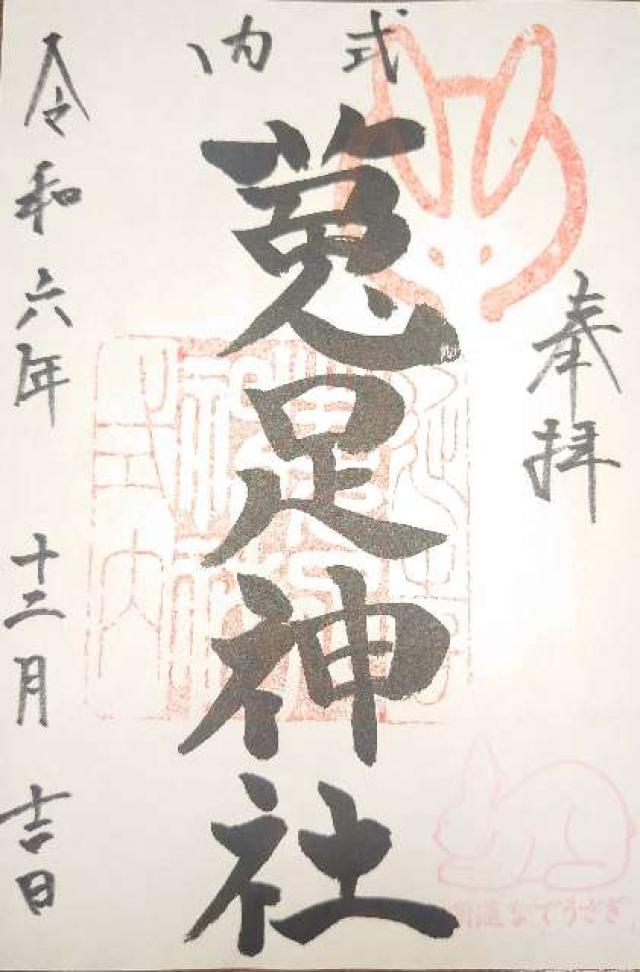 奉拝
式内
菟足神社
令和六年 十二月 吉日
開運なでうさぎ